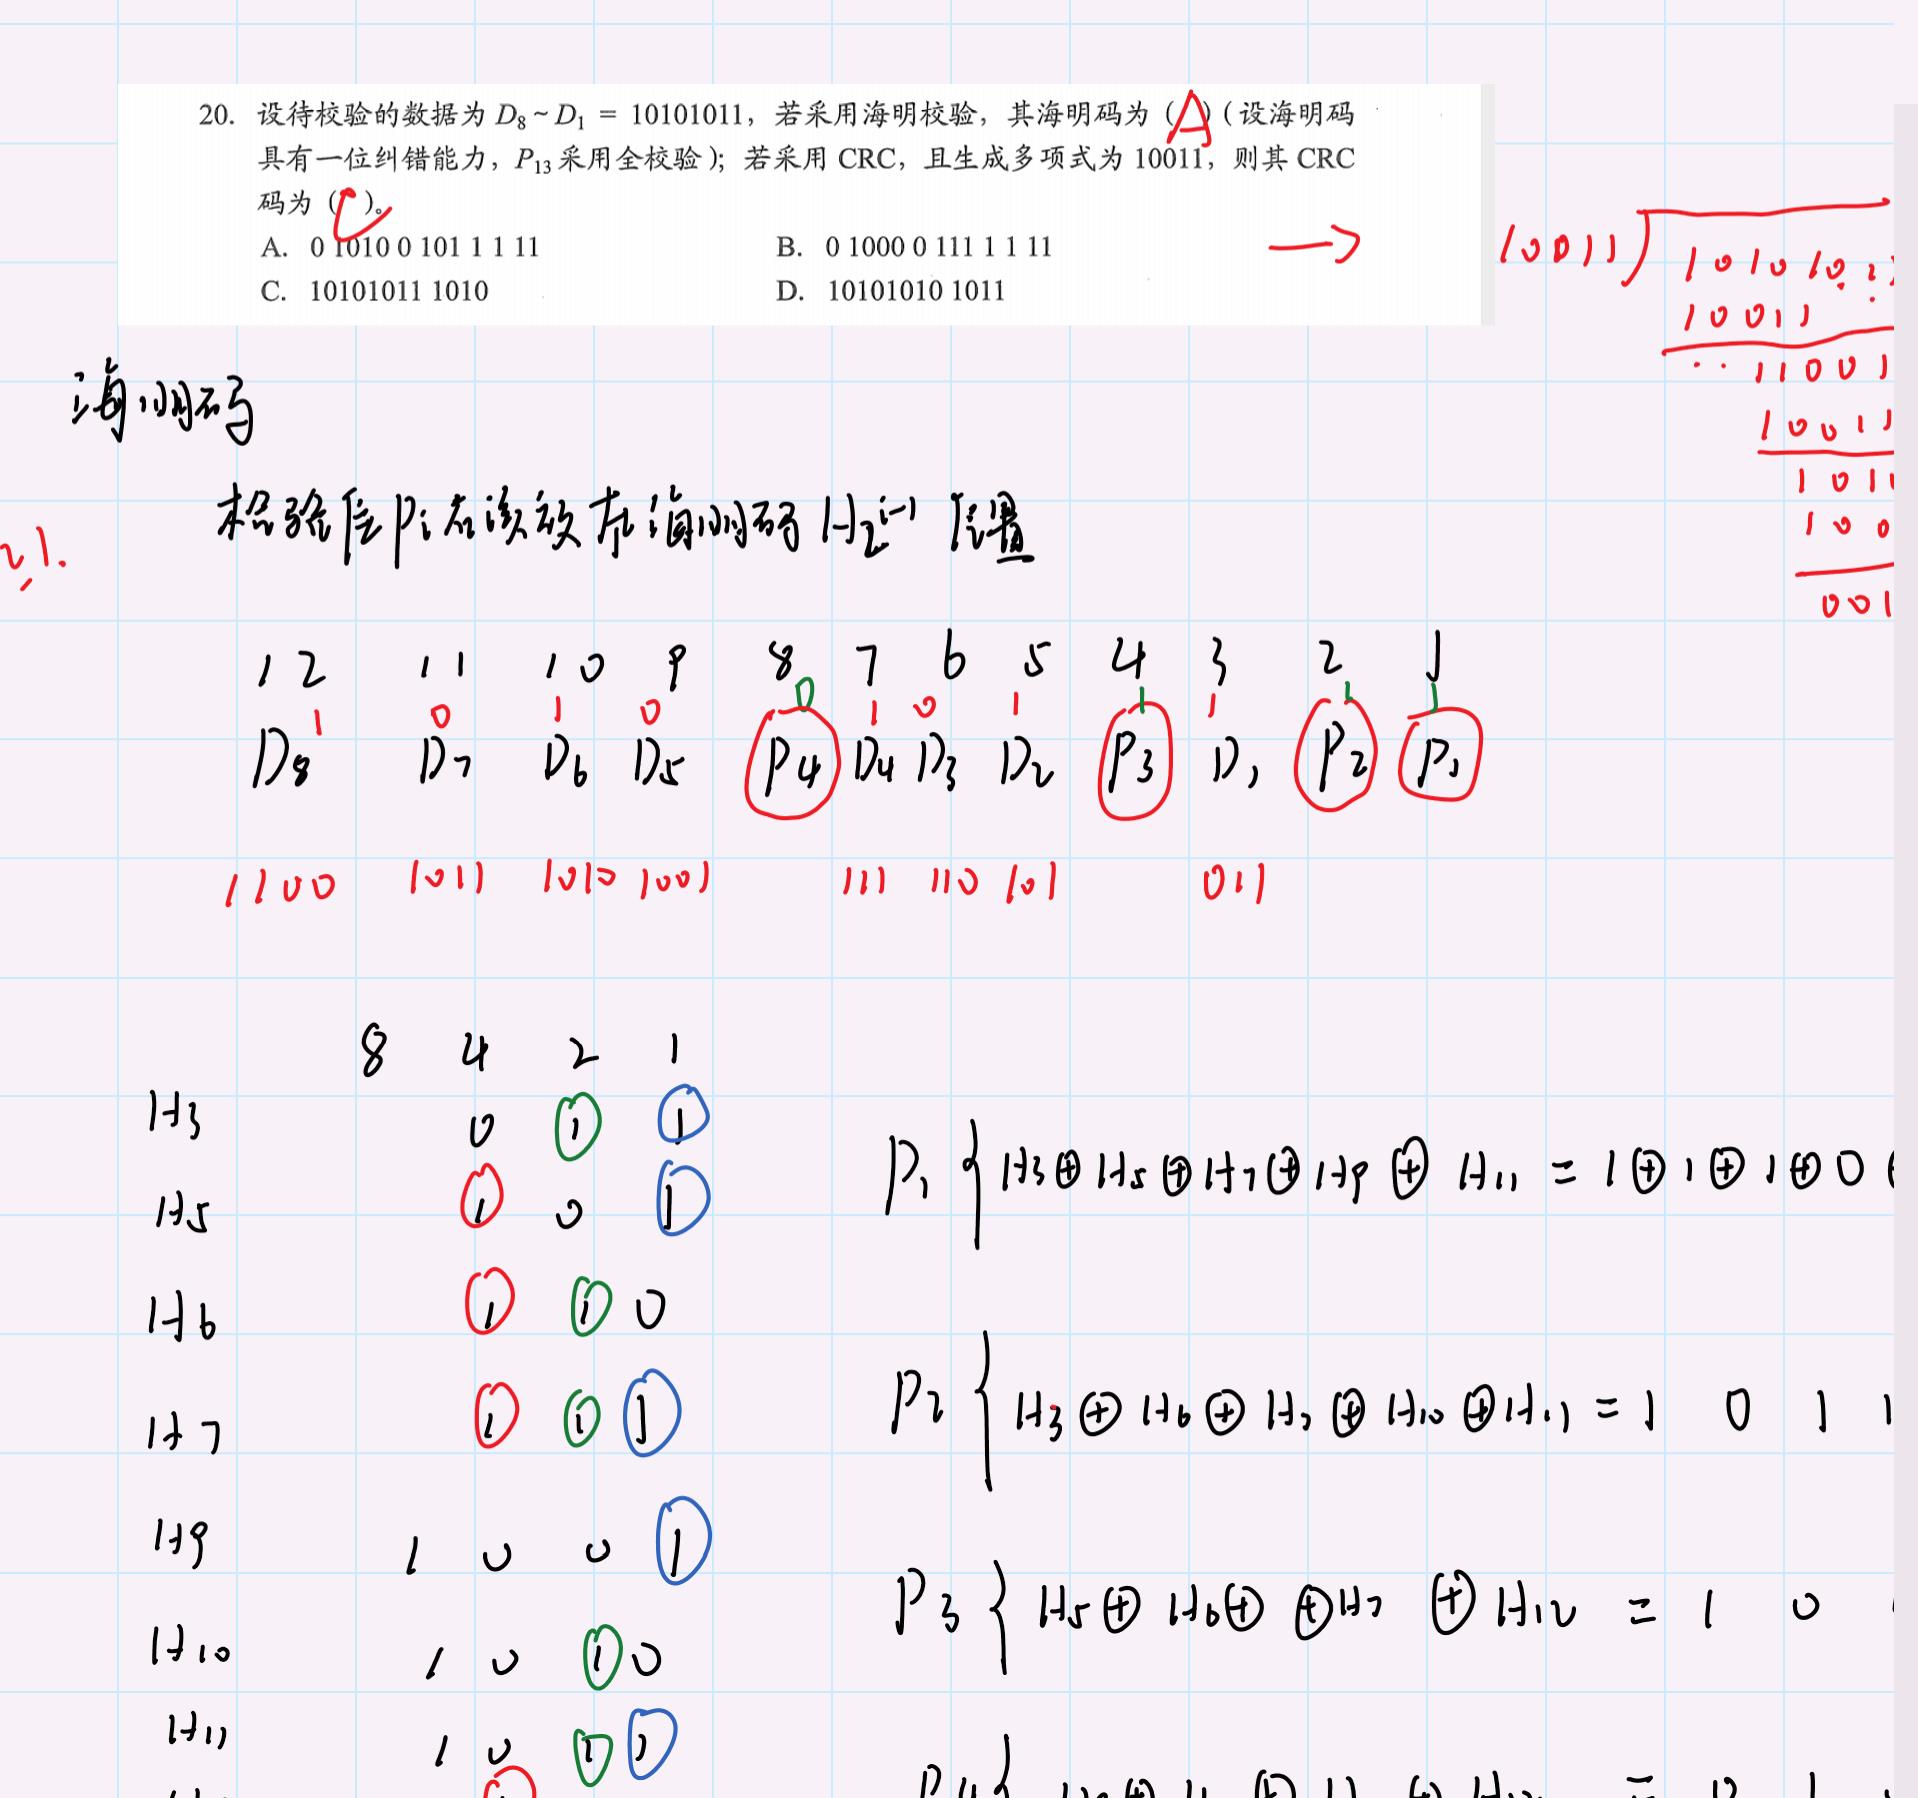 20. 设待校验的数据为 D8 ~ D1 = 10101011，若采用海明校验，其海明码为（A）（设海明码
具有一位纠错能力，P13 采用全校验）；若采用 CRC，且生成多项式为 10011，则其 CRC
码为（C）。
A. 0 1010 0 101 1 1 11
B. 0 1000 0 111 1 1 11
C. 10101011 1010
D. 10101010 1011
→ 10011
101010
10011
11001
10011
101
100
001
海明码
检验位Pi应该放在海明码H2^(i-1)位置
21.
12 11 10 9 8 7 6 5 4 3 2 1
1 0 1 0 0 1 0 1 1 1 1 1
D8 D7 D6 D5 P4 D4 D3 D2 P3 D1 P2 P1
1100 1011 1010 1001 111 110 101 011
8 4 2 1
H3 0 1 1
H5 1 0 1
H6 1 1 0
H7 1 1 1
H9 1 0 0 1
H10 1 0 1 0
H11 1 0 1 1
P1 { H3⊕H5⊕H7⊕H9⊕H11 = 1⊕1⊕1⊕0
P2 { H3⊕H6⊕H7⊕H10⊕H11 = 1 0 1 1
P3 { H5⊕H6⊕ ⊕H7 ⊕H12 = 1 0